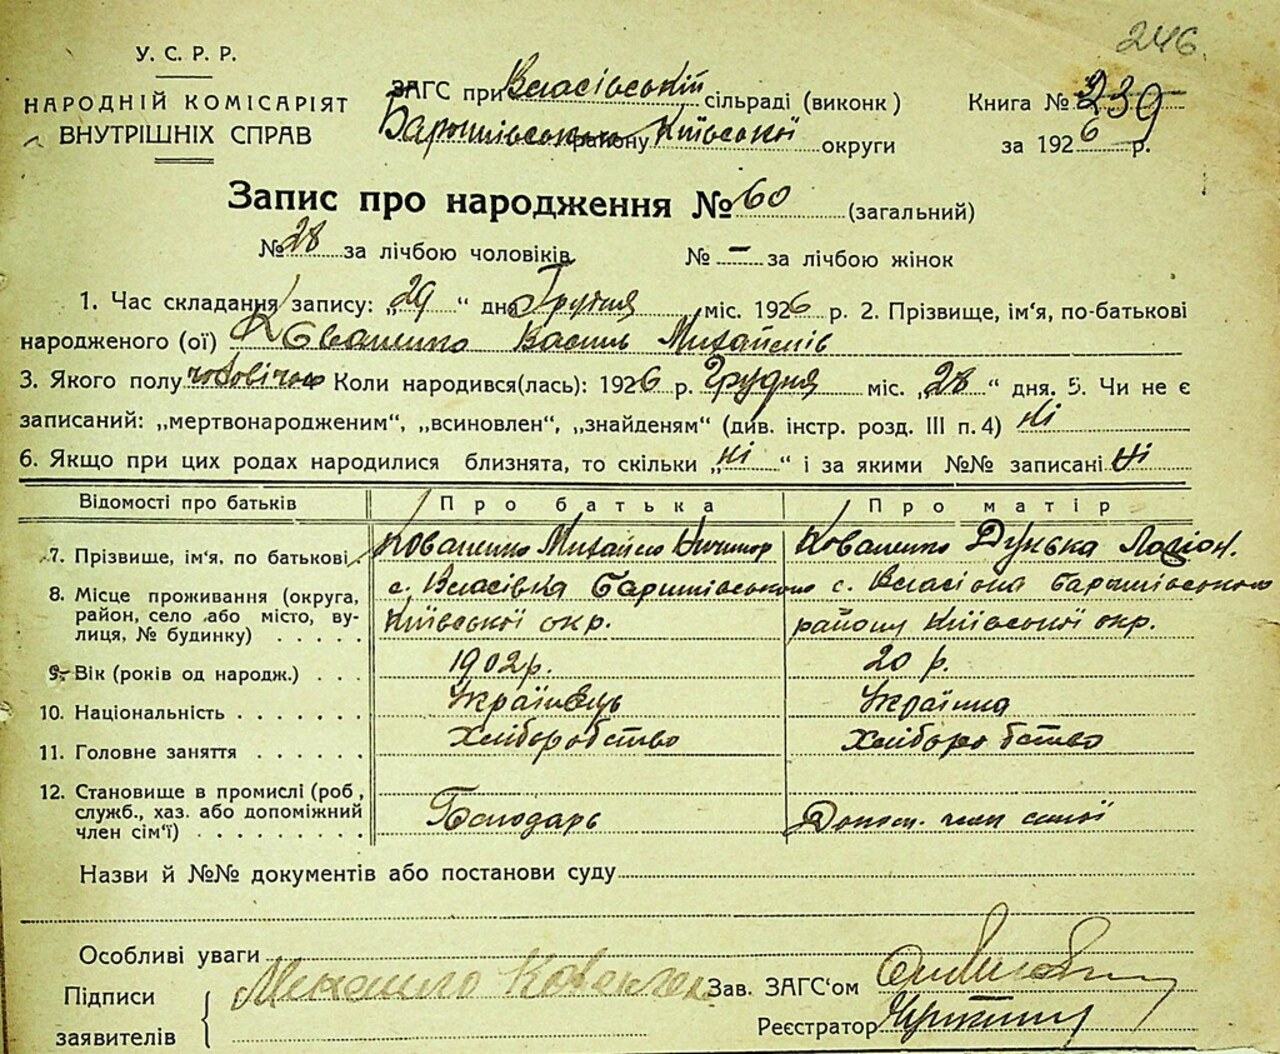 246
У. С. Р. Р.
НАРОДНІЙ КОМІСАРІЯТ
ВНУТРІШНІХ СПРАВ
ЗАГС при Власівській сільраді (виконк)
Баришівського району Київської округи
Книга № 239
за 1926 р.
Запис про народження № 60 (загальний)
№ 28 за лічбою чоловіків № — за лічбою жінок
1. Час складання запису: „29“ дня Грудня міс. 1926 р. 2. Прізвище, ім‘я, по-батькові
народженого (ої) Коваленко Василь Михайлів
3. Якого полу чоловічого Коли народився(лась): 1926 р. Грудня міс. „28“ дня. 5. Чи не є
записаний: „мертвонародженим“, „всиновлен“, „знайденям“ (див. інстр. розд. III п. 4) ні
6. Якщо при цих родах народилися близнята, то скільки „ні“ і за якими №№ записані ні
Відомості про батьків Про батька Про матір
7. Прізвище, ім‘я, по батькові. Коваленко Михайло Ничипор Коваленко Дунька Ларіон.
8. Місце проживання (округа, с. Власівка Баришівського с. Власівка Баришівського
район, село або місто, ву- Київської окр. району Київської окр.
лиця, № будинку) . . . . .
9. Вік (років од народж.) . . . 1902 р. 20 р.
10. Національність . . . . . . . Українець Українка
11. Головне заняття . . . . . . Хліборобство Хліборобство
12. Становище в промислі (роб,
служб., хаз. або допоміжний Господарь Допом. член сем‘ї
член сім‘ї) . . . . . . . . .
Назви й №№ документів або постанови суду
Особливі уваги
Підписи Михайло Коваленко Зав. ЗАГС‘ом
заявителів Реєстратор